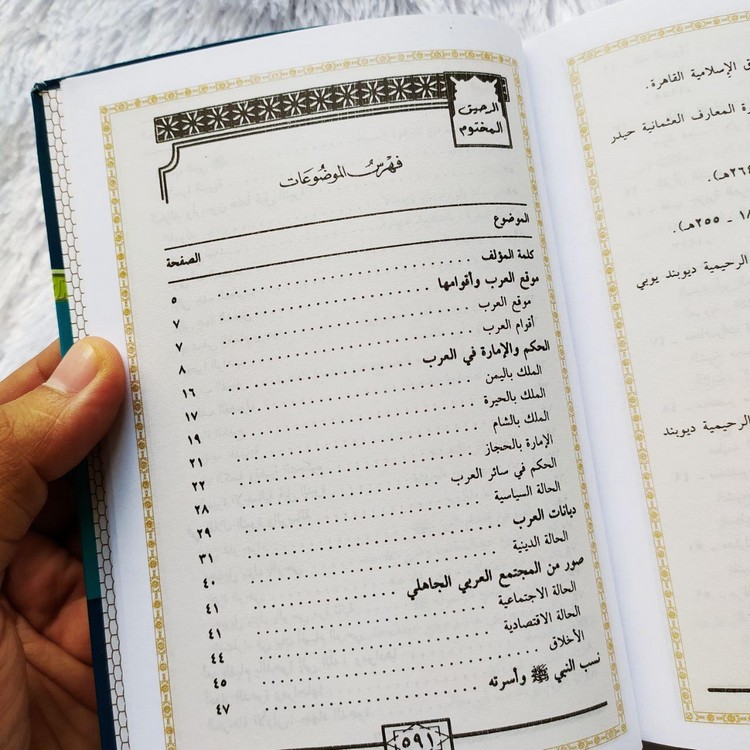 ق الإسلامية القاهرة.
رة المعارف العثمانية حيدر
٢٦٤هـ).
١٨ - ٢٥٥هـ).
الرحيمية ديوبند يوبي
الرحيمية ديوبند
الرحيق
المختوم
فهرس الموضوعات
الموضوع الصفحة
كلمة المؤلف ٥
موقع العرب وأقوامها ٧
موقع العرب ٧
أقوام العرب ٨
الحكم والإمارة في العرب ١٦
الملك باليمن ١٧
الملك بالحيرة ١٩
الملك بالشام ٢١
الإمارة بالحجاز ٢٢
الحكم في سائر العرب ٢٨
الحالة السياسية ٢٩
ديانات العرب ٣١
الحالة الدينية ٤٠
صور من المجتمع العربي الجاهلي ٤١
الحالة الاجتماعية ٤١
الحالة الاقتصادية ٤٤
الأخلاق ٤٥
نسب النبي ﷺ وأسرته ٤٧
٥٩١